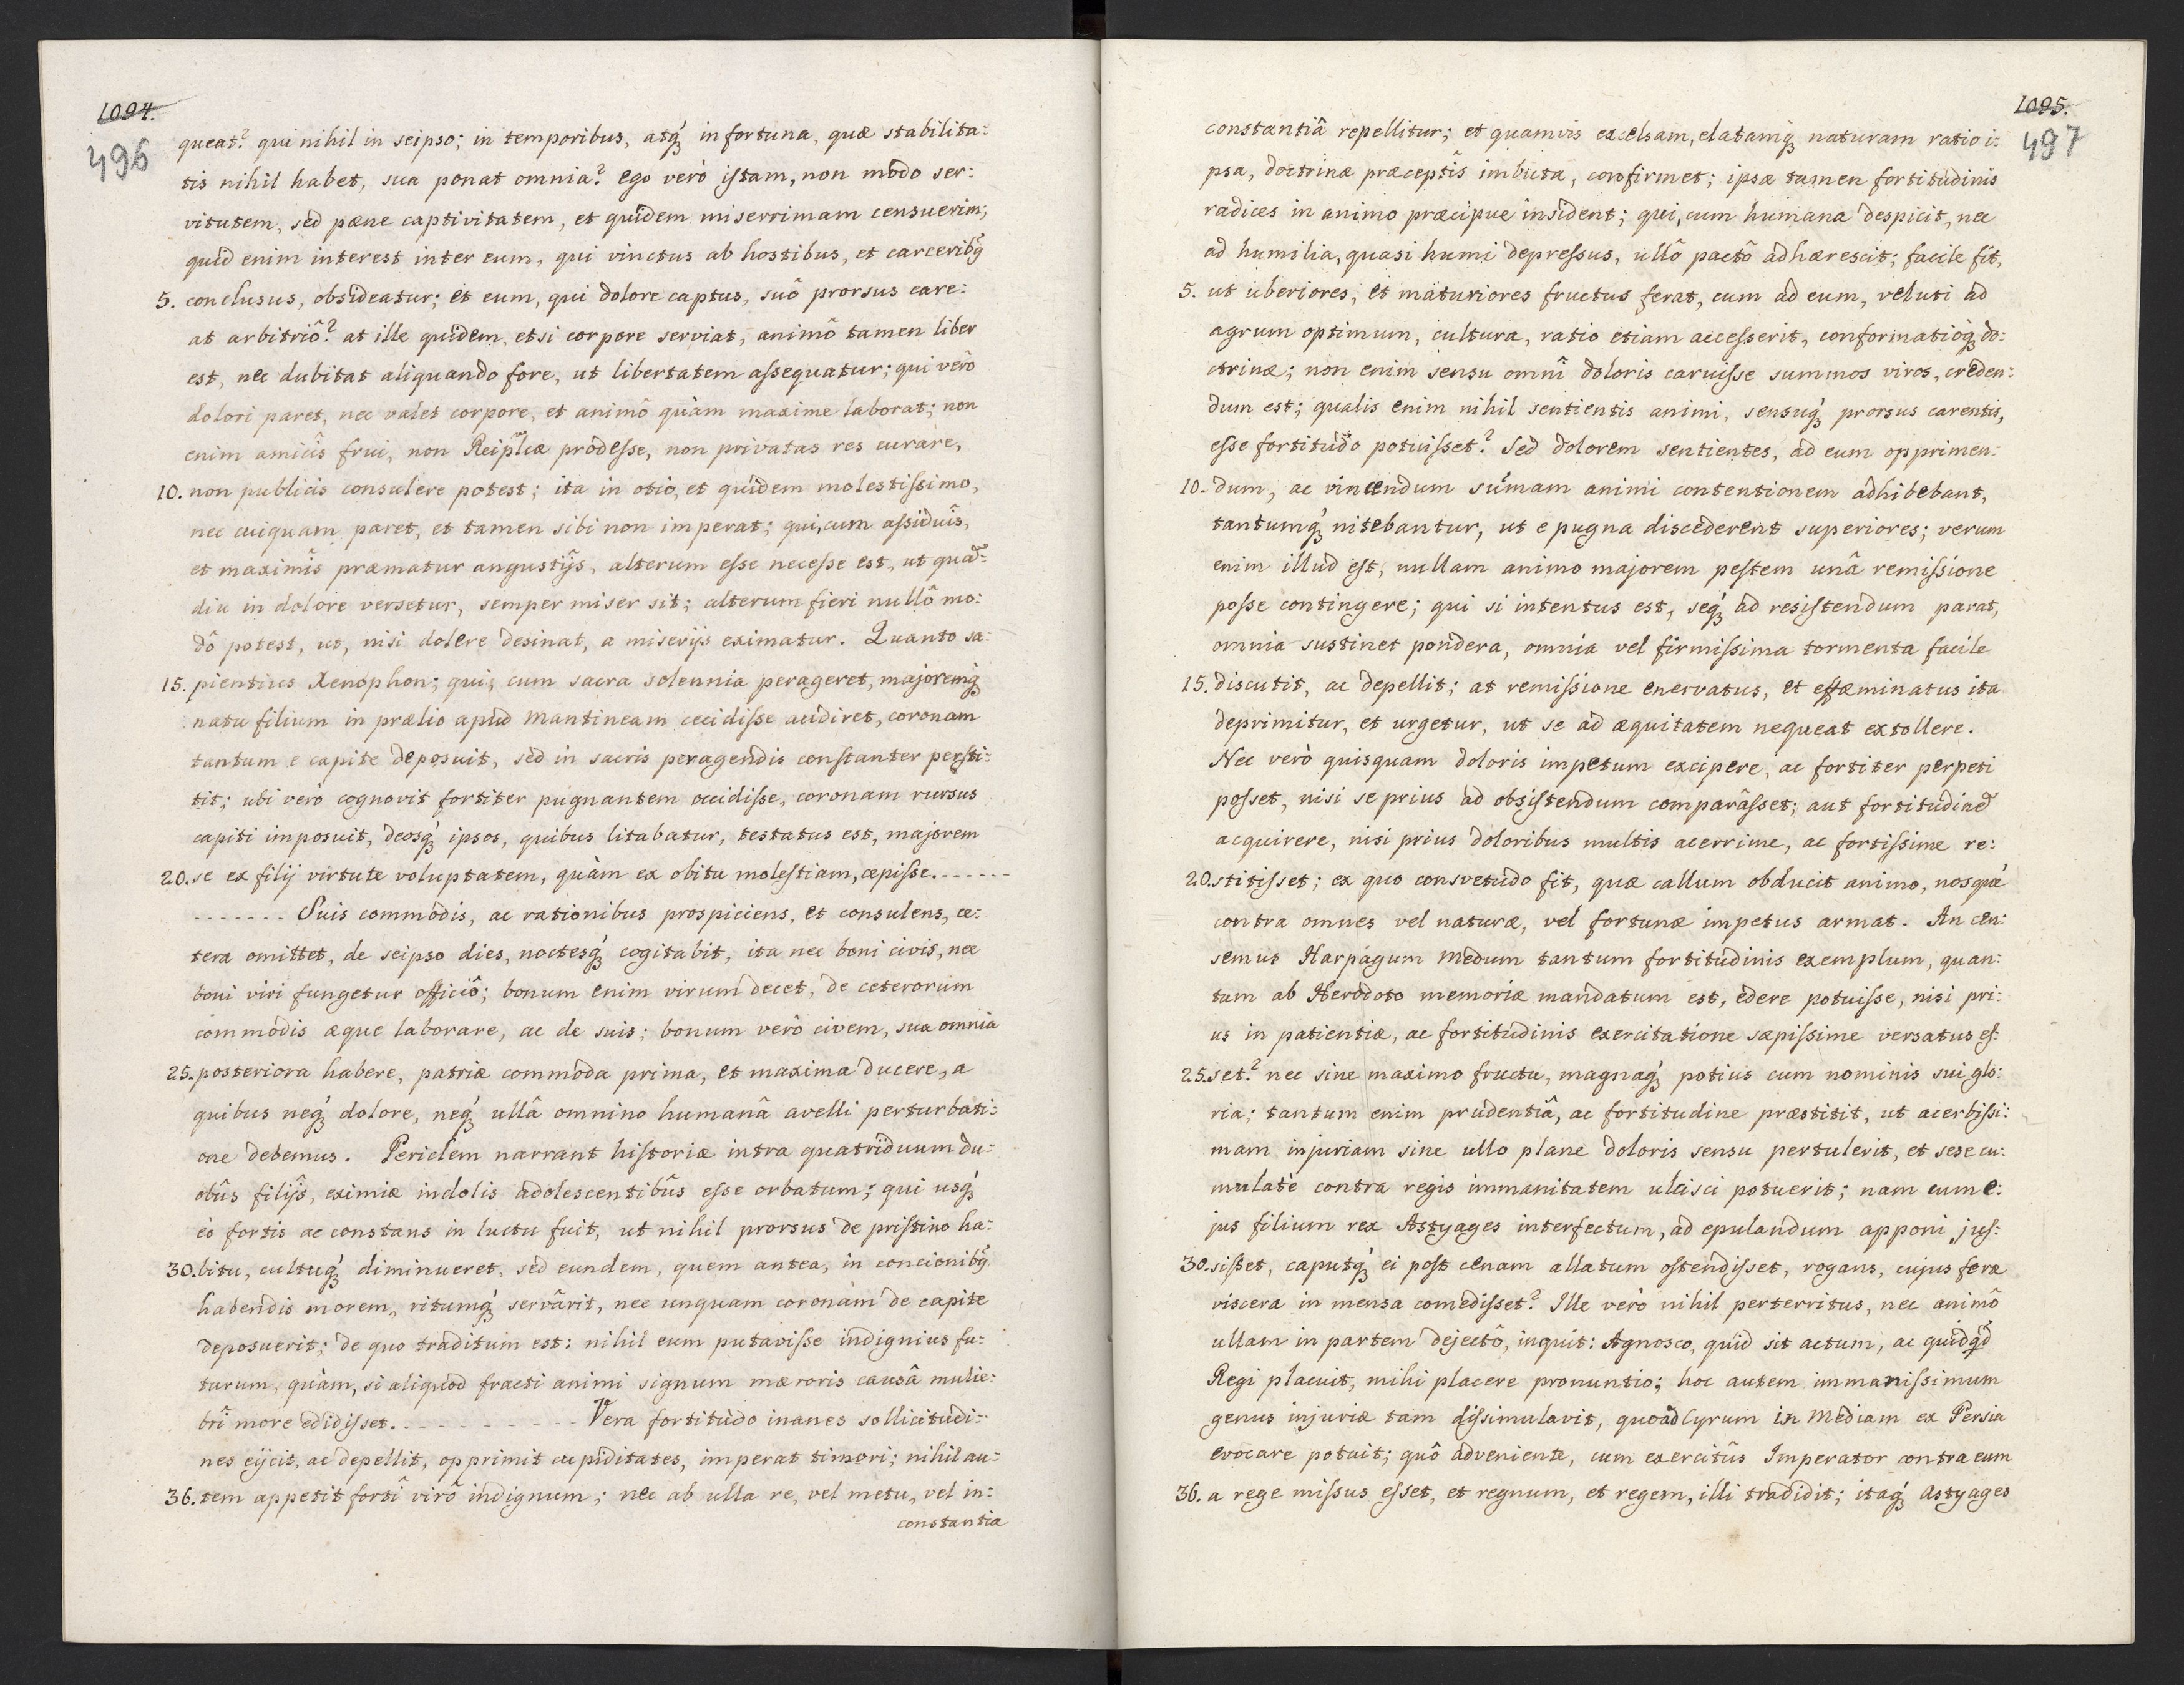 1094.
496
queat? qui nihil in seipso; in temporibus, atq́ꝫ in fortuna, quæ stabilita:
tis nihil habet, sua ponat omnia? ego verò istam, non modo ser:
vitutem, sed pæne captivitatem, et quidem miserrimam censuerim;
quid enim interest inter eum, qui vinctus ab hostibus, et carceribq́
5. conclusus, obsideatur; et eum, qui dolore captus, suô prorsus care:
at arbitriô? at ille quidem, etsi corpore serviat, animô tamen liber
est, nec dubitat aliquando fore, ut libertatem assequatur; qui verò
dolori paret, nec valet corpore, et animô quàm maxime laborat; non
enim amicîs frui, non Reiplicæ prodesse, non privatas res curare,
10. non publicis consulere potest; ita in otio, et quidem molestissimo,
nec cuiquam paret, et tamen sibi non imperat; qui, cum assiduîs,
et maximîs præmatur angustijs, alterum esse necesse est, ut quã:
diu in dolore versetur, semper miser sit; alterum fieri nullô mo:
dô potest, ut, nisi dolere desinat, a miserijs eximatur. Quanto sa:
15. pientius Xenophon; qui, cum sacra solennia perageret, majoremq́
natu filium in prælio apud Mantineam cecidisse audiret, coronam
tantum e capite deposuit, sed in sacris peragendis constanter persti:
tit; ubi verò cognovit fortiter pugnantem occidisse, coronam rursus
capiti imposuit, deosq́ꝫ ipsos, quibus litabatur, testatus est, majorem
20. se ex filij virtute voluptatem, quàm ex obitu molestiam, cæpisse. - - - - - - -
- - - - - - - Suis commodis, ac rationibus prospiciens, et consulens, ce:
tera omittet, de seipso dies, noctesq́ꝫ cogitabit, ita nec boni civis, nec
boni viri fungetur officiô; bonum enim virum decet, de ceterorum
commodis æque laborare, ac de suis; bonum verò civem, sua omnia
25. posteriora habere, patriæ commoda prima, et maxima ducere, a
quibus neq́ꝫ dolore, neq́ꝫ ullâ omnino humanâ avelli perturbati:
one debemus. Periclem narrant historiæ intra quatriduum du:
obûs filijs, eximiæ indolis adolescentibûs esse orbatum; qui usq́ꝫ
eò fortis ac constans in luctu fuit, ut nihil prorsus de pristino ha:
30. bitu, cultuq́ꝫ diminueret, sed eundem, quem antea, in concionibq́
habendis morem, ritumq́ꝫ servârit, nec unquam coronam de capite
deposuerit; de quo traditum est: nihil eum putavisse indignius fu:
turum, quàm, si aliquod fracti animi signum mæroris causâ mulie:
brî more edidisset. - - - - - - - - - - Vera fortitudo inanes sollicitudi:
nes eijcit, ac depellit, opprimit cupiditates, imperat timori; nihil au:
36. tem appetit fortî virô indignum; nec ab ulla re, vel metu, vel in:
constantia
1095.
497
constantiâ repellitur; et quamvis excelsam, elatamq́ꝫ naturam ratio i:
psa, doctrinæ præceptîs imbuta, confirmet; ipsæ tamen fortitudinis
radices in animo præcipue insident; qui, cum humana despicit, nec
ad humilia, quasi humi depressus, ullô pactô adhærescit; facile fit,
5. ut uberiores, et maturiores fructus ferat, cum ad eum, veluti ad
agrum optimum, cultura, ratio etiam accesserit, conformatioq́ꝫ do:
ctrinæ; non enim sensu omnî doloris caruisse summos viros, creden:
dum est; qualis enim nihil sentientis animi, sensuq́ꝫ prorsus carentis,
esse fortitudo potuisset? Sed dolorem sentientes, ad eum opprimen:
10. dum, ac vincendum sum̃am animi contentionem adhibebant,
tantumq́ꝫ nitebantur, ut e pugna discederent superiores; verum
enim illud est, nullam animo majorem pestem unâ remissione
posse contingere; qui si intentus est, seq́ꝫ ad resistendum parat,
omnia sustinet pondera, omnia vel firmissima tormenta facile
15. discutit, ac depellit; at remissione enervatus, et effæminatus ita
deprimitur, et urgetur, ut se ad æquitatem nequeat extollere.
Nec verò quisquam doloris impetum excipere, ac fortiter perpeti
posset, nisi se prius ad obsistendum comparâsset; aut fortitudinẽ
acquirere, nisi prius doloribus multis acerrime, ac fortissime re:
20. stitisset; ex quo consvetudo fit, quæ callum obducit animo, nosqué
contra omnes vel naturæ, vel fortunæ impetus armat. An cen:
semus Harpagum Medum tantum fortitudinis exemplum, quan:
tum ab Herodoto memoriæ mandatum est, edere potuisse, nisi pri:
us in patientiæ, ac fortitudinis exercitatione sæpissime versatus es:
25. set? nec sine maximo fructu, magnaq́ꝫ potius cum nominis sui glo:
ria; tantum enim prudentiâ, ac fortitudine præstitit, ut acerbissi:
mam injuriam sine ullo plane doloris sensu pertulerit, et sese cu:
mulatè contra regis immanitatem ulcisci potuerit; nam cum e:
jus filium rex Astyages interfectum, ad epulandum apponi jus:
30. sisset, caputq́ꝫ ei post cenam allatum ostendisset, rogans, cujus feræ
viscera in mensa comedisset? Ille verò nihil perterritus, nec animô
ullam in partem dejectô, inquit: Agnosco, quid sit actum, ac quidq́d
Regi placuit, mihi placere pronuntio; hoc autem immanissimum
genus injuriæ tam dissimulavit, quoad Cyrum in Mediam ex Persia
evocare potuit; quô adveniente, cum exercitûs Imperator contra eum
36. a rege missus esset, et regnum, et regem, illi tradidit; itaq́ꝫ Astyages